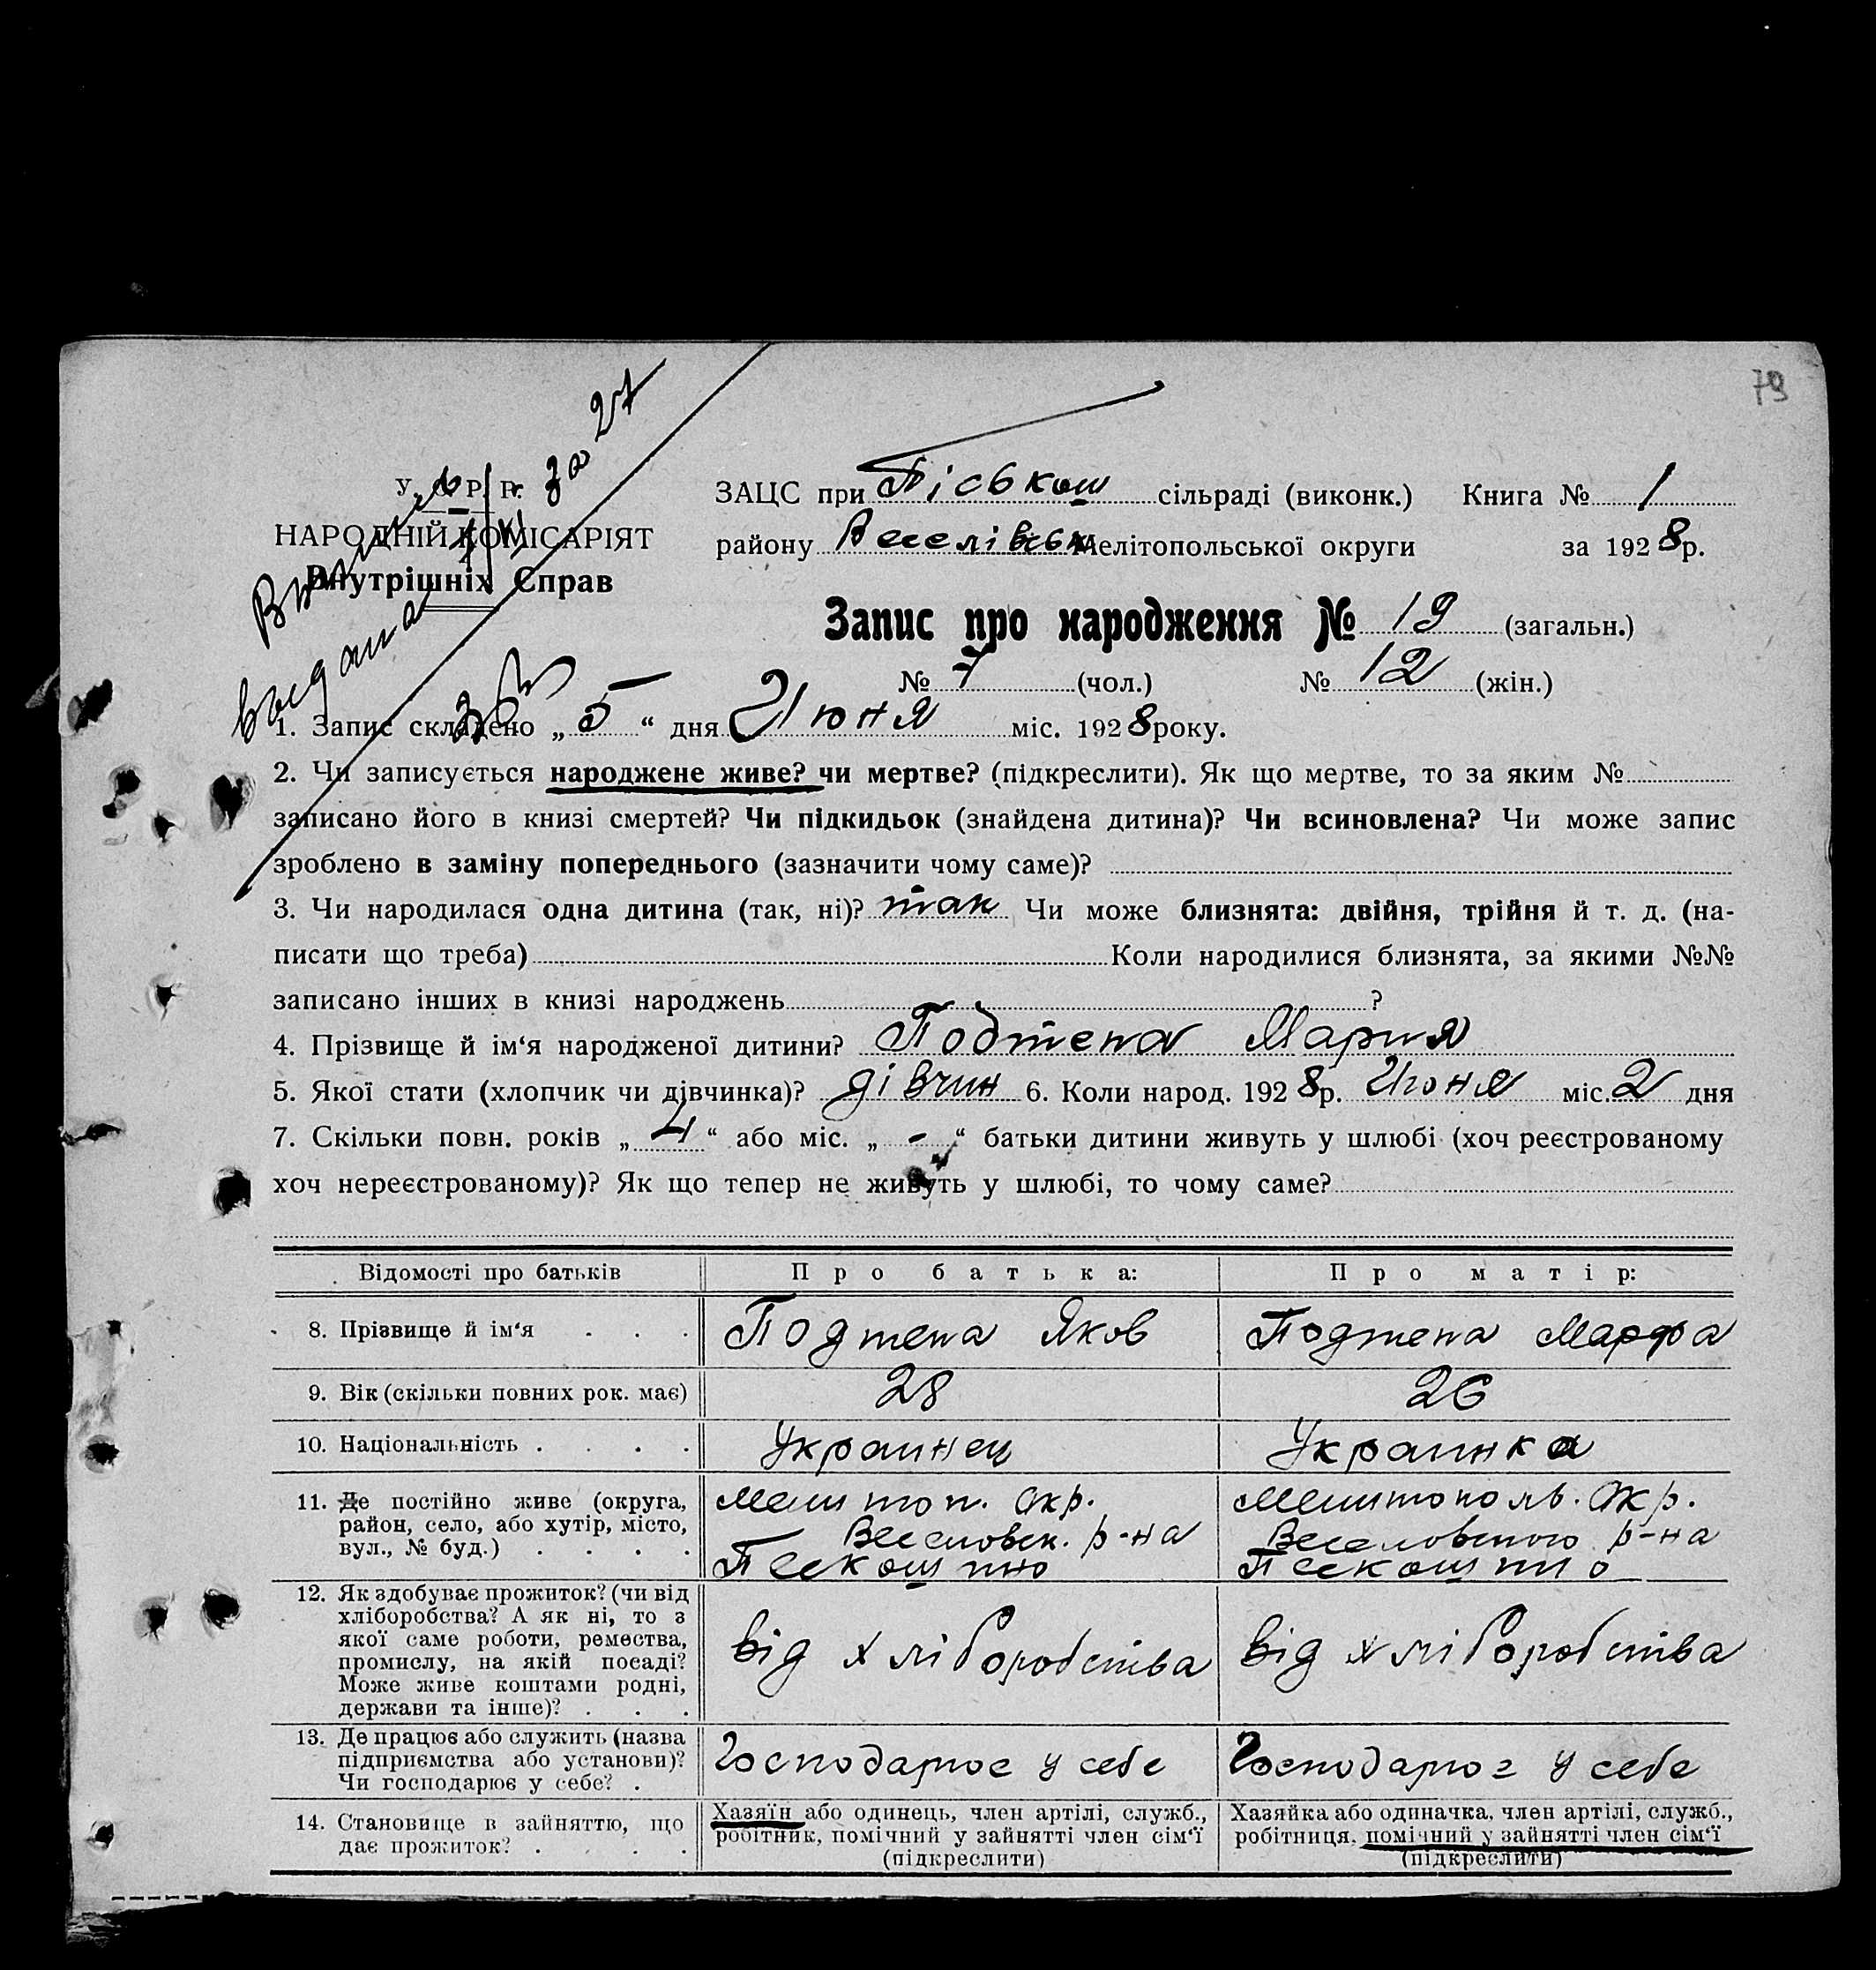 79
У. С. Р. Р.
НАРОДНІЙ КОМІСАРІЯТ
Внутрішніх Справ
за 27
видана
ЗАЦС при Піськош сільраді (виконк.) Книга № 1
району Веселівськ Мелітопольської округи за 1928р.
Запис про народження № 19 (загальн.)
№ 7 (чол.) № 12 (жін.)
1. Запис складено „5“ дня Июня міс. 1928року.
2. Чи записується народжене живе? чи мертве? (підкреслити). Як що мертве, то за яким №
записано його в книзі смертей? Чи підкидьок (знайдена дитина)? Чи всиновлена? Чи може запис
зроблено в заміну попереднього (зазначити чому саме)?
3. Чи народилася одна дитина (так, ні)? так Чи може близнята: двійня, трійня й т. д. (на-
писати що треба) Коли народилися близнята, за якими №№
записано інших в книзі народжень ?
4. Прізвище й ім‘я народженої дитини? Подтепа Мария
5. Якої стати (хлопчик чи дівчинка)? дівчин 6. Коли народ. 1928р. Июня міс. 2 дня
7. Скільки повн. років „4“ або міс. „-“ батьки дитини живуть у шлюбі (хоч реєстрованому
хоч нереєстрованому)? Як що тепер не живуть у шлюбі, то чому саме?
Відомості про батьків Про батька: Про матір:
8. Прізвище й ім‘я . . . Подтепа Яков Подтепа Марфа
9. Вік (скільки повних рок. має) 28 26
10. Національність . . . . Украинец Украинка
11. Де постійно живе (округа, район, село, або хутір, місто, вул., № буд.) . . . .
Мелитоп. окр.
Веселовск. р-на
Пескошино
Мелитополь. окр.
Веселовского р-на
Пескошино
12. Як здобуває прожиток? (чи від
хліборобства? А як ні, то з
якої саме роботи, ремества,
промислу, на якій посаді?
Може живе коштами родні,
держави та інше)? . . .
від хліборобства від хліборобства
13. Де працює або служить (назва
підприємства або установи)?
Чи господарює у себе? .
Господарює у себе Господарює у себе
14. Становище в зайняттю, що
дає прожиток? . . . .
Хазяїн або одинець, член артілі, служб.,
робітник, помічний у зайнятті член сім‘ї
(підкреслити)
Хазяйка або одиначка, член артілі, служб.,
робітниця, помічний у зайнятті член сім‘ї
(підкреслити)